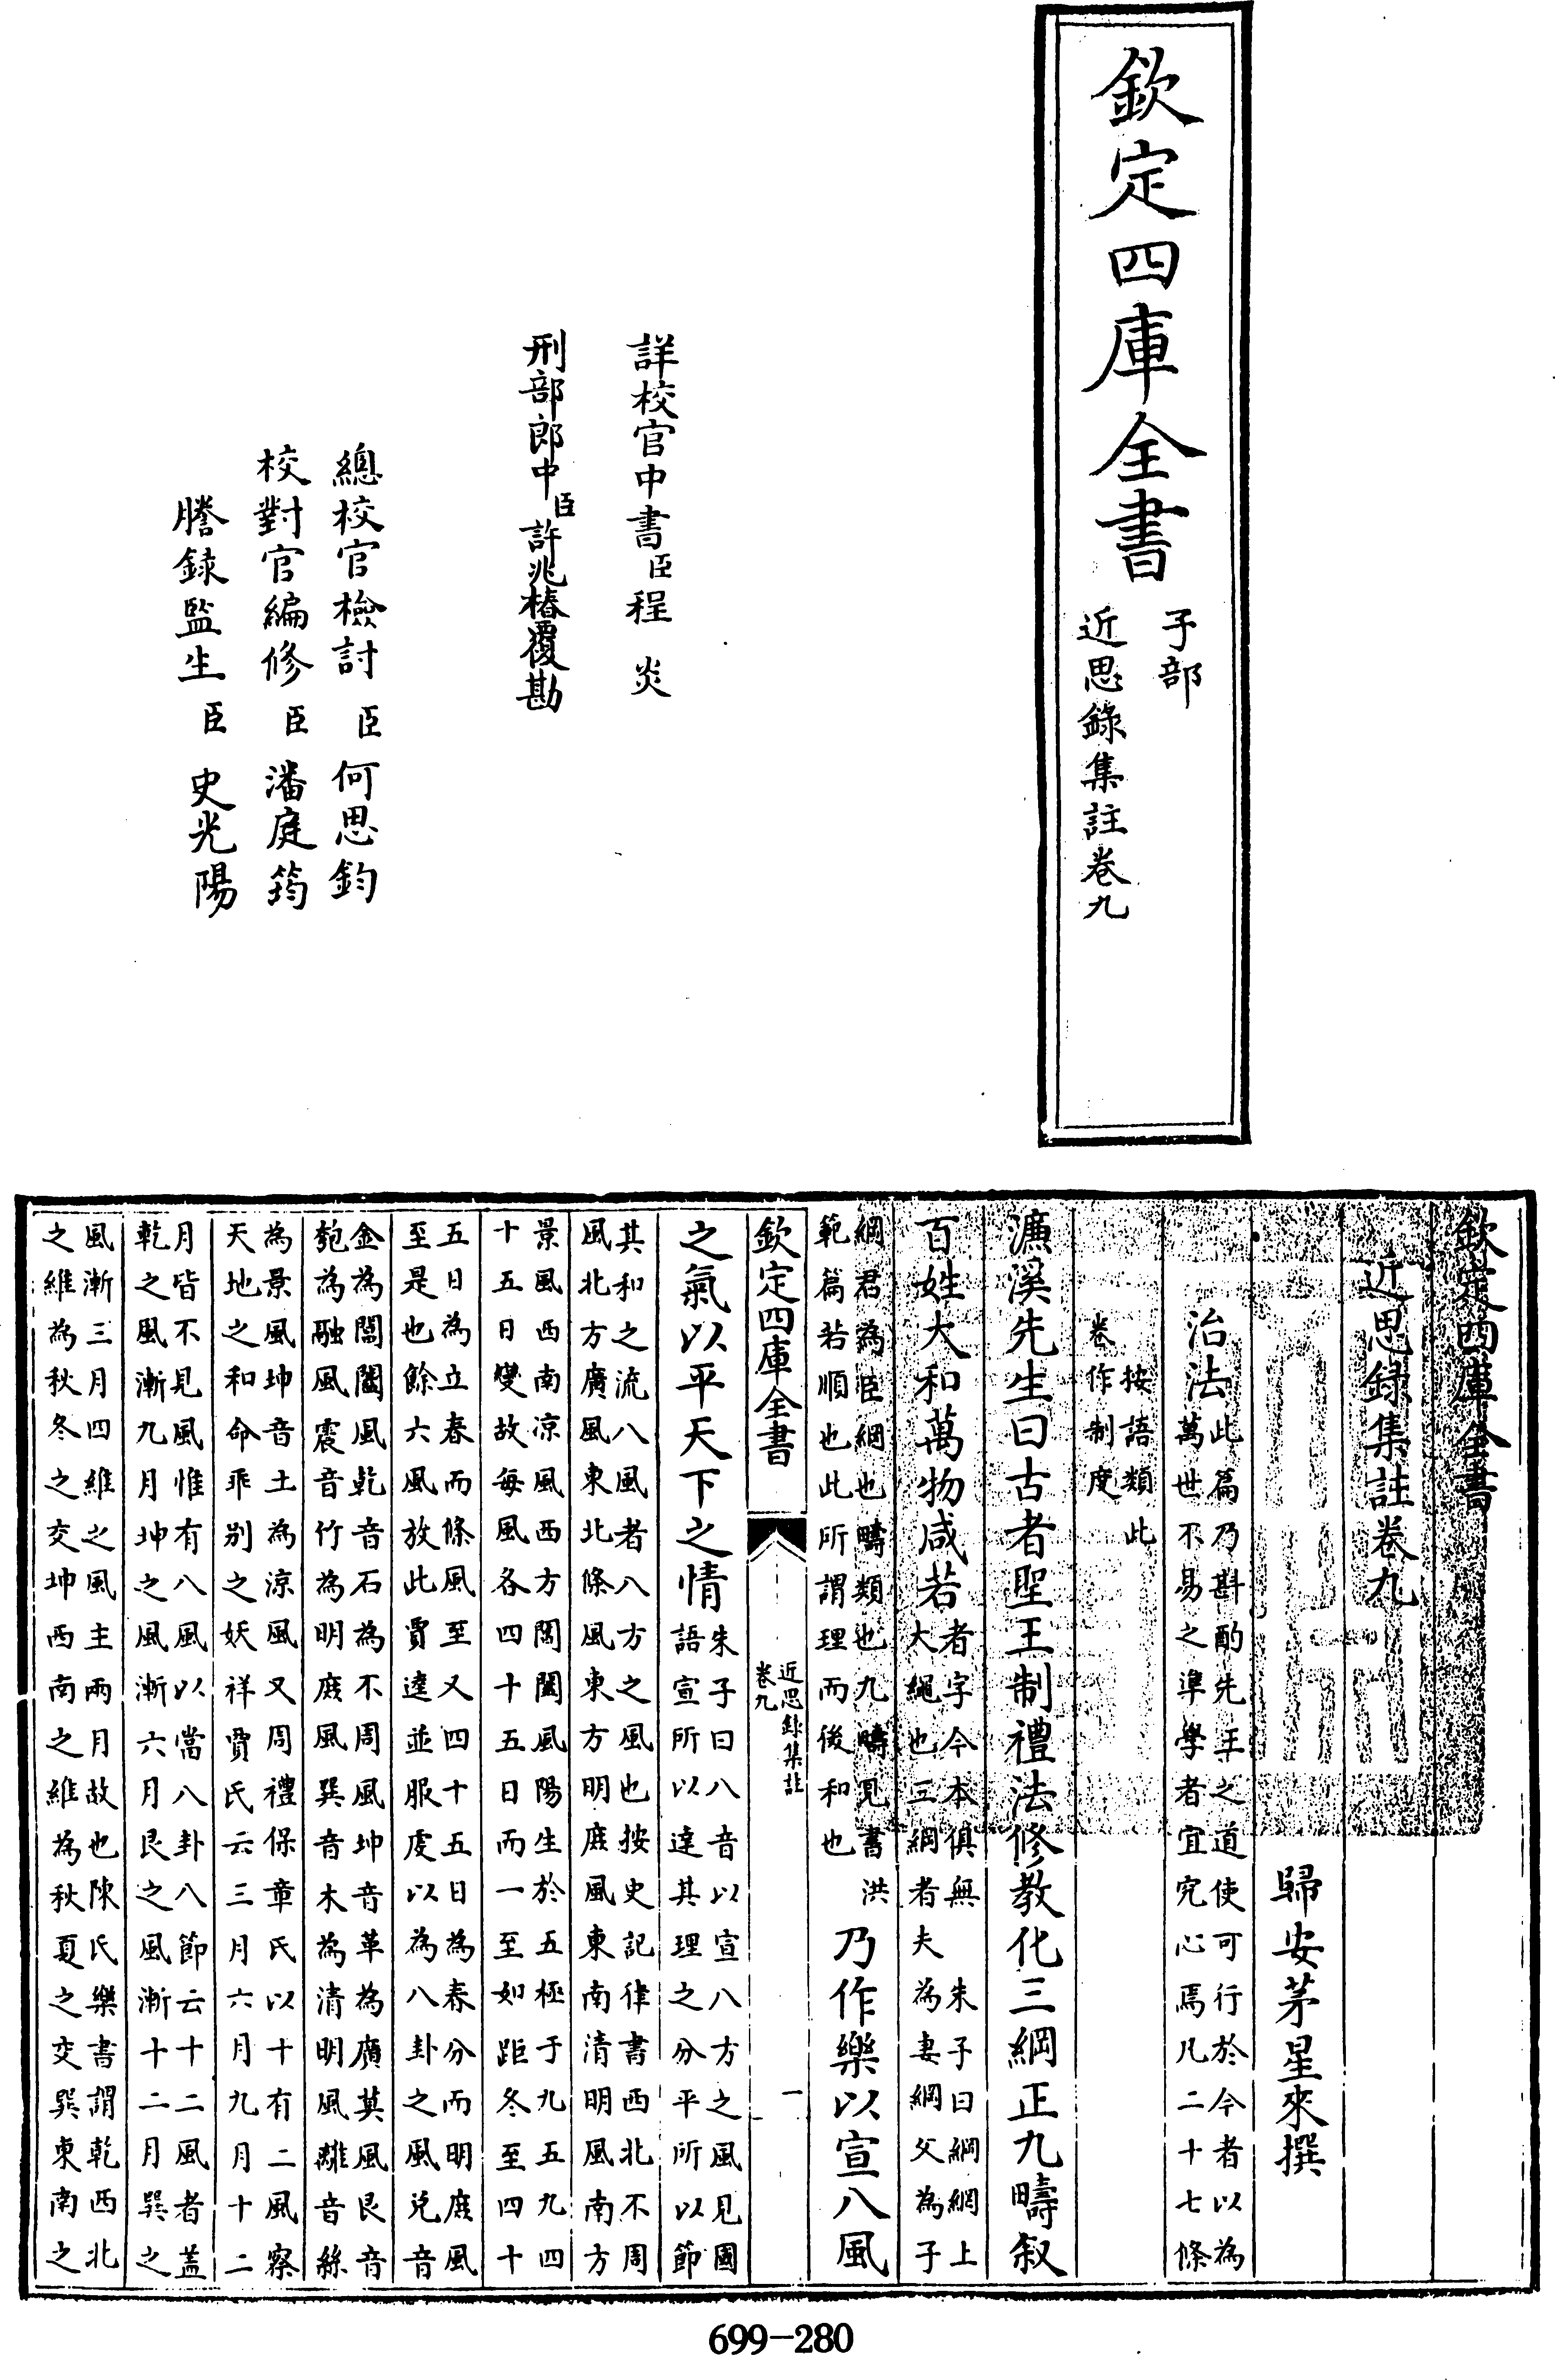 欽定四庫全書
子部
近思錄集註卷九
詳校官中書臣程炎
刑部郎中臣許兆椿覆勘
總校官檢討臣何思鈞
校對官編修臣潘庭筠
謄錄監生臣史光陽
欽定四庫全書
近思録集註卷九
歸安茅星來撰
治法此篇乃斟酌先王之道使可行於今者以為
萬世不易之準學者宜究心焉凡二十七條
按語類此
卷作制度
濂溪先生曰古者聖王制禮法修教化三綱正九疇叙
百姓大和萬物咸若者字今本俱無 朱子曰綱網上
大繩也三綱者夫為妻綱父為子
綱君為臣綱也疇類也九疇見書洪
範篇若順也此所謂理而後和也
乃作樂以宣八風
欽定四庫全書
近思錄集註
卷九
一
之氣以平天下之情朱子曰八音以宣八方之風見國
語宣所以達其理之分平所以節
其和之流八風者八方之風也按史記律書西北不周
風北方廣風東北條風東方明庶風東南清明風南方
景風西南凉風西方閶闔風陽生於五極于九五九四
十五日變故每風各四十五日而一至如距冬至四十
五日為立春而條風至又四十五日為春分而明庶風
至是也餘六風放此賈逵並服虔以為八卦之風兌音
金為閶闔風乾音石為不周風坤音革為廣莫風艮音
匏為融風震音竹為明庶風巽音木為清明風離音絲
為景風坤音土為涼風又周禮保章氏以十有二風察
天地之和命乖别之妖祥賈氏云三月六月九月十二
月皆不見風惟有八風以當八卦八節云十二風者盖
乾之風漸九月坤之風漸六月艮之風漸十二月巽之
風漸三月四維之風主兩月故也陳氏樂書謂乾西北
之維為秋冬之交坤西南之維為秋夏之交巽東南之
699-280